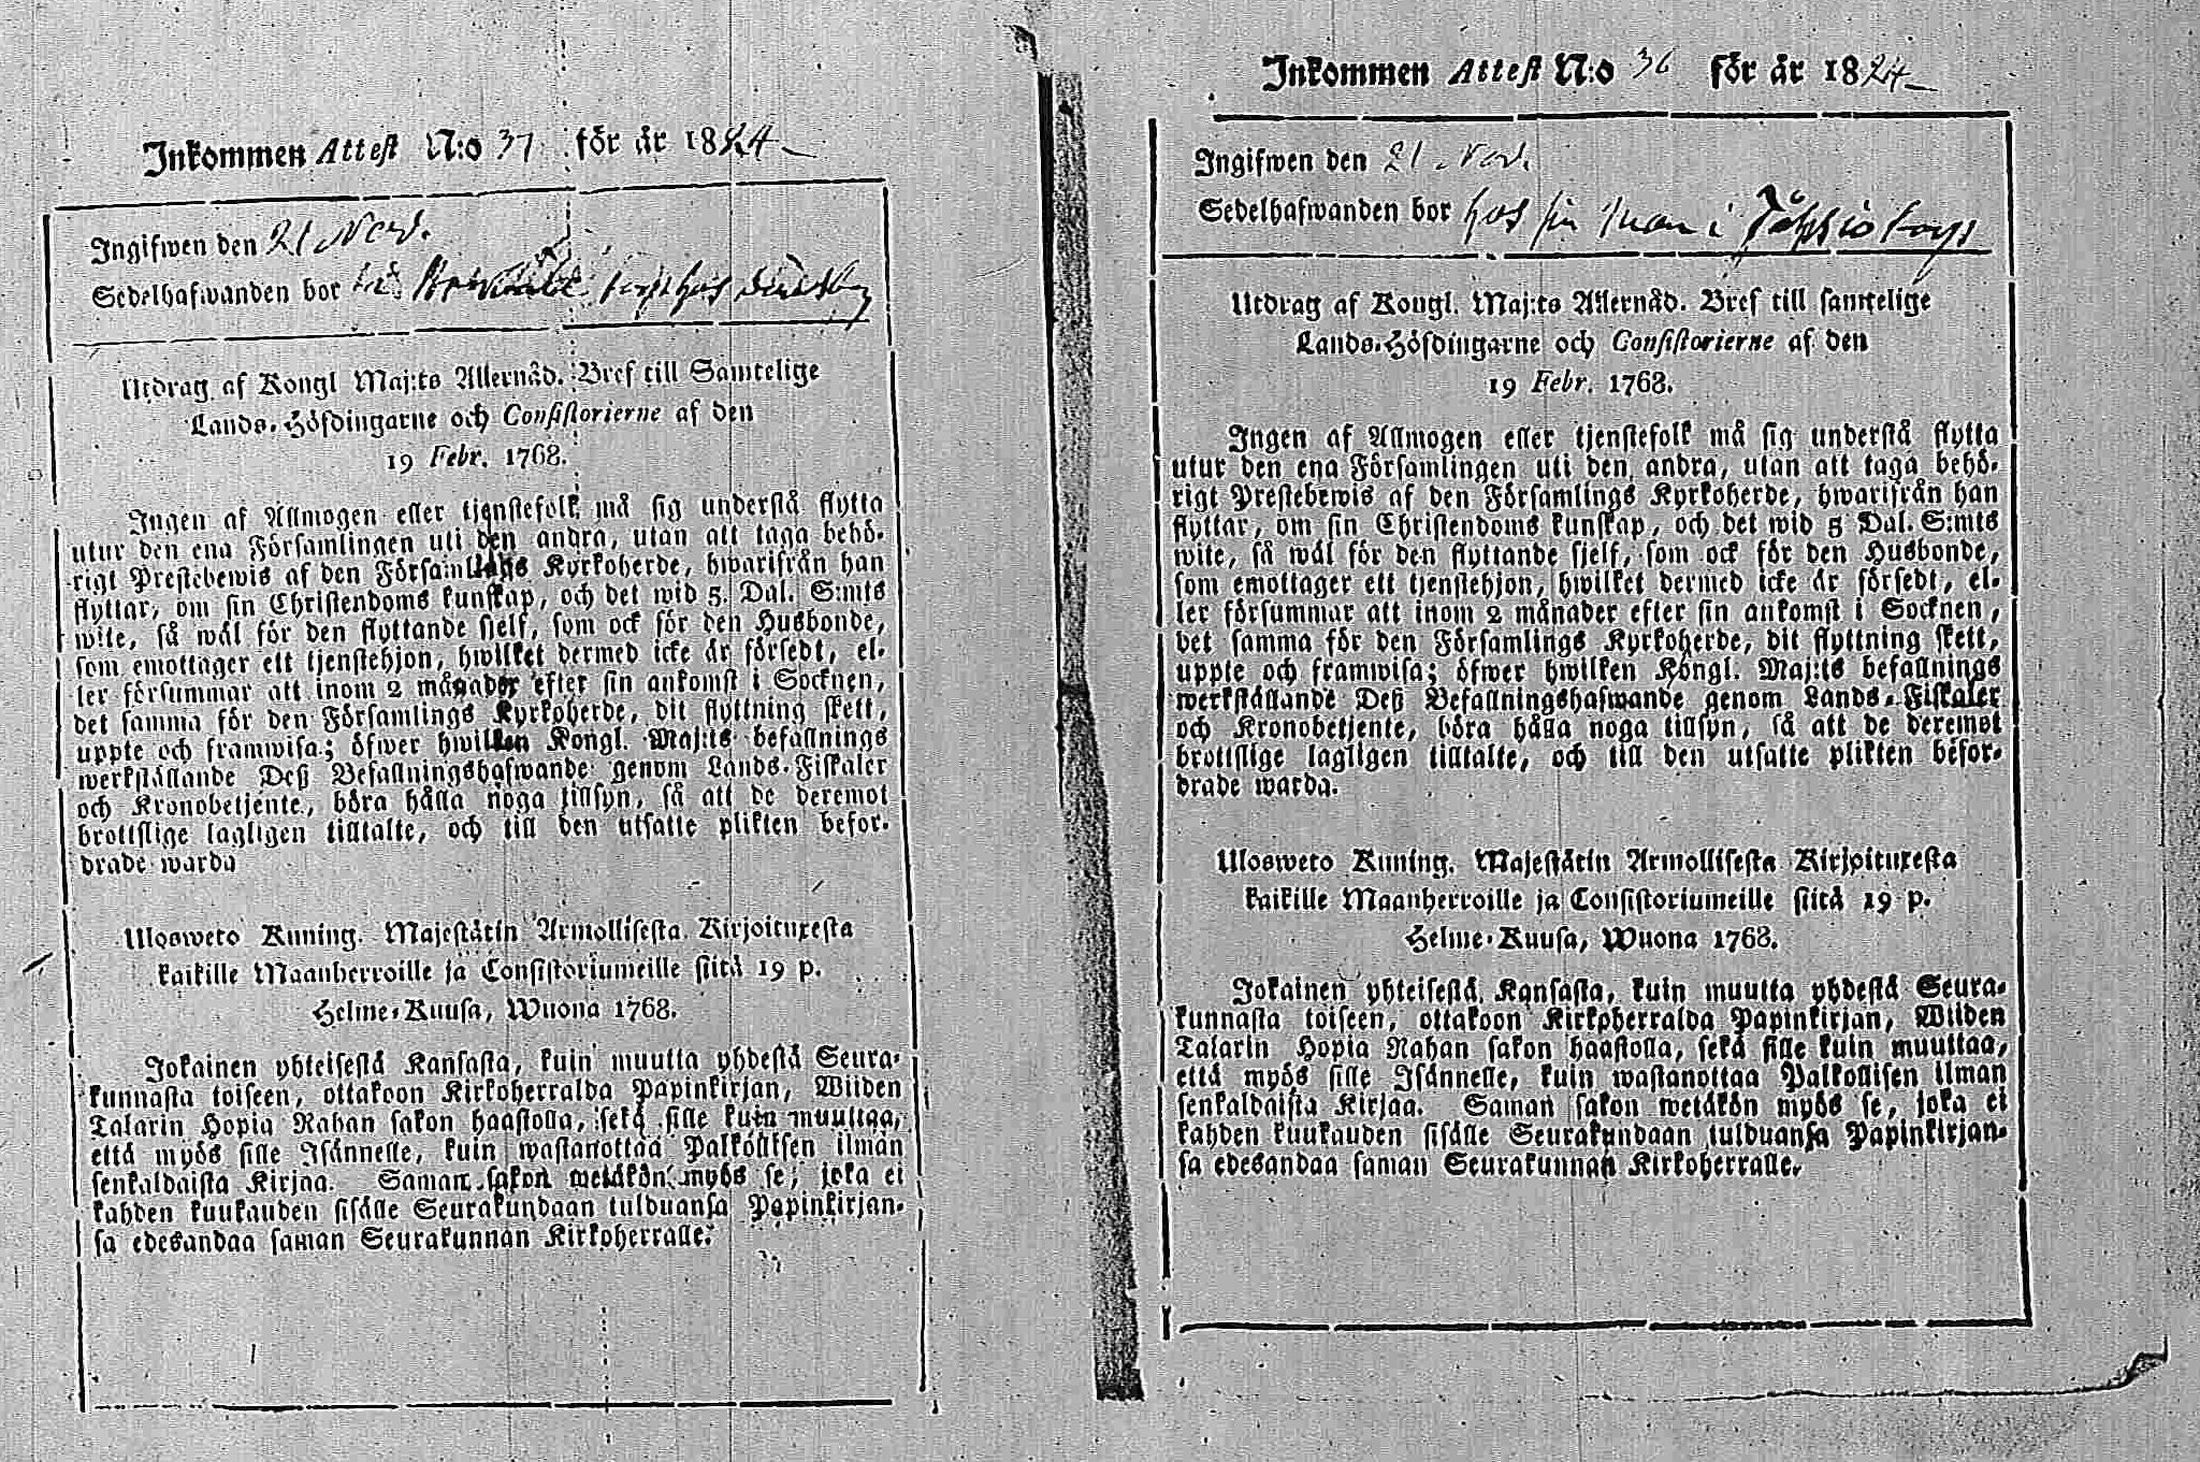 Inkommen Attest N:o 37 för år 1824
Ingifwen den 21 Nov.
Sedelhafwanden bor
Utdrag af Kongl Maj:ts Allernåd. Bref till Samtelige
Lands-Höfdingarne och Consistorierne af den
19 Febr. 1768.
Ingen af Allmogen eller tjenstefolk må sig understå flytta
utur den ena Församlingen uti den andra, utan att taga behö-
rigt Prestebewis af den Församlings Kyrkoherde, hwarifrån han
flyttar, om sin Christendoms kunskap, och det wid 5. Dal. S:mts
wite, så wäl för den flyttande sjelf, som ock för den Husbonde,
som emottager ett tjenstehjon, hwilket dermed icke är försedt, el-
ler försummar att inom 2 månader efter sin ankomst i Socknen,
det samma för den Församlings Kyrkoherde, dit flyttning skett,
uppte och framwisa; öfwer hwilken Kongl. Maj:ts befallnings
werkställande Deß Befallningshafwande genom Lands-Fiskaler
och Kronobetjente, böra hålla noga tillsyn, så att de deremot
brottslige lagligen tilltalte, och till den utsatte plikten befor-
drade warda
Ulosweto Kuning. Majestätin Armollisesta Kirjoituxesta
kaikille Maanherroille ja Consistoriumeille siitä 19 p.
Helme-Kuusa, Wuona 1768.
Jokainen yhteisestä Kansasta, kuin muutta yhdestä Seura-
kunnasta toiseen, ottakoon Kirkoherralda Papinkirjan, Wiiden
Talarin Hopia Rahan sakon haastolla, sekä sille kuin muuttaa,
että myös sille Isännelle, kuin wastanottaa Palkollisen ilman
senkaldaista Kirjaa. Saman sakon wetäkön myös se, joka ei
kahden kuukauden sisälle Seurakundaan tulduansa Papinkirjan-
sa edesandaa saman Seurakunnan Kirkoherralle.
Inkommen Attest N:o 36 för år 1824
Ingifwen den 21. Nov.
Sedelhafwanden bor hos sin man i
Utdrag af Kongl. Maj:ts Allernåd. Bref till samtelige
Lands-Höfdingarne och Consistorierne af den
19 Febr. 1768.
Ingen af Allmogen eller tjenstefolk må sig understå flytta
utur den ena Församlingen uti den andra, utan att taga behö-
rigt Prestebewis af den Församlings Kyrkoherde, hwarifrån han
flyttar, om sin Christendoms kunskap, och det wid 5 Dal. S:mts
wite, så wäl för den flyttande sjelf, som ock för den Husbonde,
som emottager ett tjenstehjon, hwilket dermed icke är försedt, el-
ler försummar att inom 2 månader efter sin ankomst i Socknen,
det samma för den Församlings Kyrkoherde, dit flyttning skett,
uppte och framwisa; öfwer hwilken Kongl. Maj:ts befallnings
werkställande Deß Befallningshafwande genom Lands-Fiskaler
och Kronobetjente, böra hålla noga tillsyn, så att de deremot
brottslige lagligen tilltalte, och till den utsatte plikten befor-
drade warda.
Ulosweto Kuning. Majestätin Armollisesta Kirjoituxesta
kaikille Maanherroille ja Consistoriumeille siitä 19 p.
Helme-Kuusa, Wuona 1768.
Jokainen yhteisestä Kansasta, kuin muutta yhdestä Seura-
kunnasta toiseen, ottakoon Kirkoherralda Papinkirjan, Wiiden
Talarin Hopia Rahan sakon haastolla, sekä sille kuin muuttaa,
että myös sille Isännelle, kuin wastanottaa Palkollisen ilman
senkaldaista Kirjaa. Saman sakon wetäkön myös se, joka ei
kahden kuukauden sisälle Seurakundaan tulduansa Papinkirjan-
sa edesandaa saman Seurakunnan Kirkoherralle.